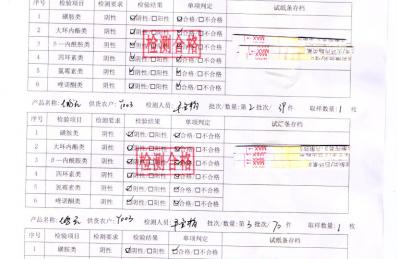 序号 检验项目 检测要求 检验结果 单项判定 试纸条存档
1 磺胺类 阴性 ☑阴性□阳性 ☑合格□不合格
2 大环内酯类 阴性 ☑阴性□阳性 ☑合格□不合格
3 β-内酰胺类 阴性 ☑阴性□阳性 ☑合格□不合格
4 四环素类 阴性 ☑阴性□阳性 ☑合格□不合格
5 氯霉素类 阴性 ☑阴性□阳性 ☑合格□不合格
6 喹诺酮类 阴性 ☑阴性□阳性 ☑合格□不合格
检测合格
产品名称: 供货农户: Y003 检测人员: 批次/数量:第2批次/ 件 取样数量:1枚
序号 检验项目 检测要求 检验结果 单项判定 试纸条存档
1 磺胺类 阴性 ☑阴性□阳性 ☑合格□不合格
2 大环内酯类 阴性 ☑阴性□阳性 ☑合格□不合格
3 β-内酰胺类 阴性 ☑阴性□阳性 ☑合格□不合格
4 四环素类 阴性 ☑阴性□阳性 ☑合格□不合格
5 氯霉素类 阴性 ☑阴性□阳性 ☑合格□不合格
6 喹诺酮类 阴性 ☑阴性□阳性 ☑合格□不合格
检测合格
产品名称: 供货农户: Y003 检测人员: 批次/数量:第3批次/70件 取样数量:1枚
序号 检验项目 检测要求 检验结果 单项判定 试纸条存档
1 磺胺类 阴性 ☑阴性□阳性 ☑合格□不合格